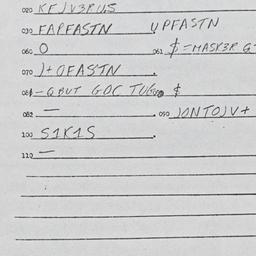 020 KFJV3RUS
030 FARFASTN UPFASTN
060 O 061 $=MASK3R G
070 )+OFASTN.
081 -QBUT GOC TUG $
082 — . 090 JONTOJV+
100 S1K1S.
110 —